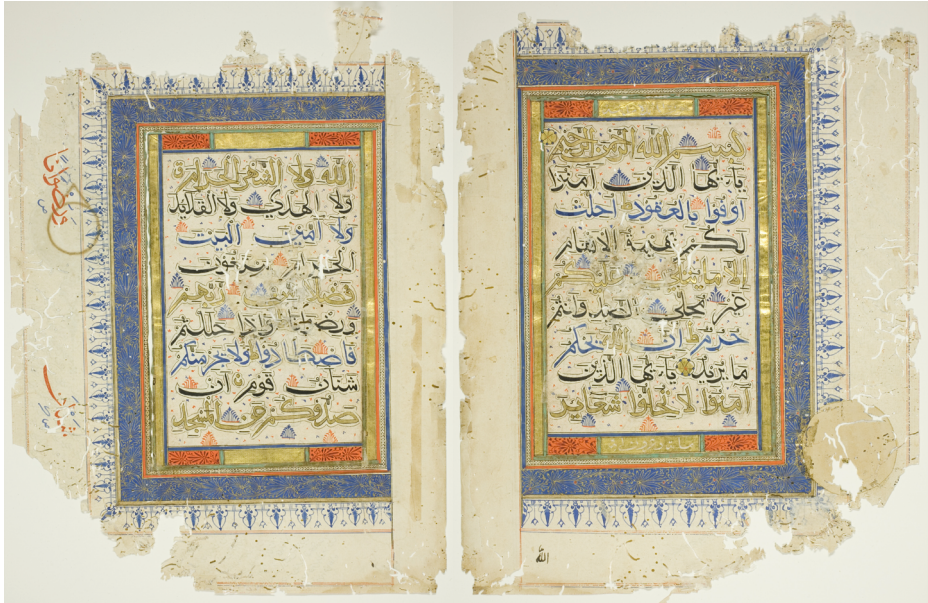 بسم الله الرحمن الرحيم
يايها الذين آمنوا
اوفوا بالعقود احلت
لكم بهيمة الانعام
الا ما يتلى عليكم
غير محلي الصيد وانتم
حرم ان الله يحكم
ما يريد يايها الذين
آمنوا لا تحلوا شعائر
الله
الله ولا الشهر الحرام
ولا الهدي ولا القلائد
ولا آمين البيت
الحرام يبتغون
فضلا من ربهم
ورضوانا واذا حللتم
فاصطادوا ولا يجرمنكم
شنان قوم ان
صدوكم عن المسجد
ورضوانا